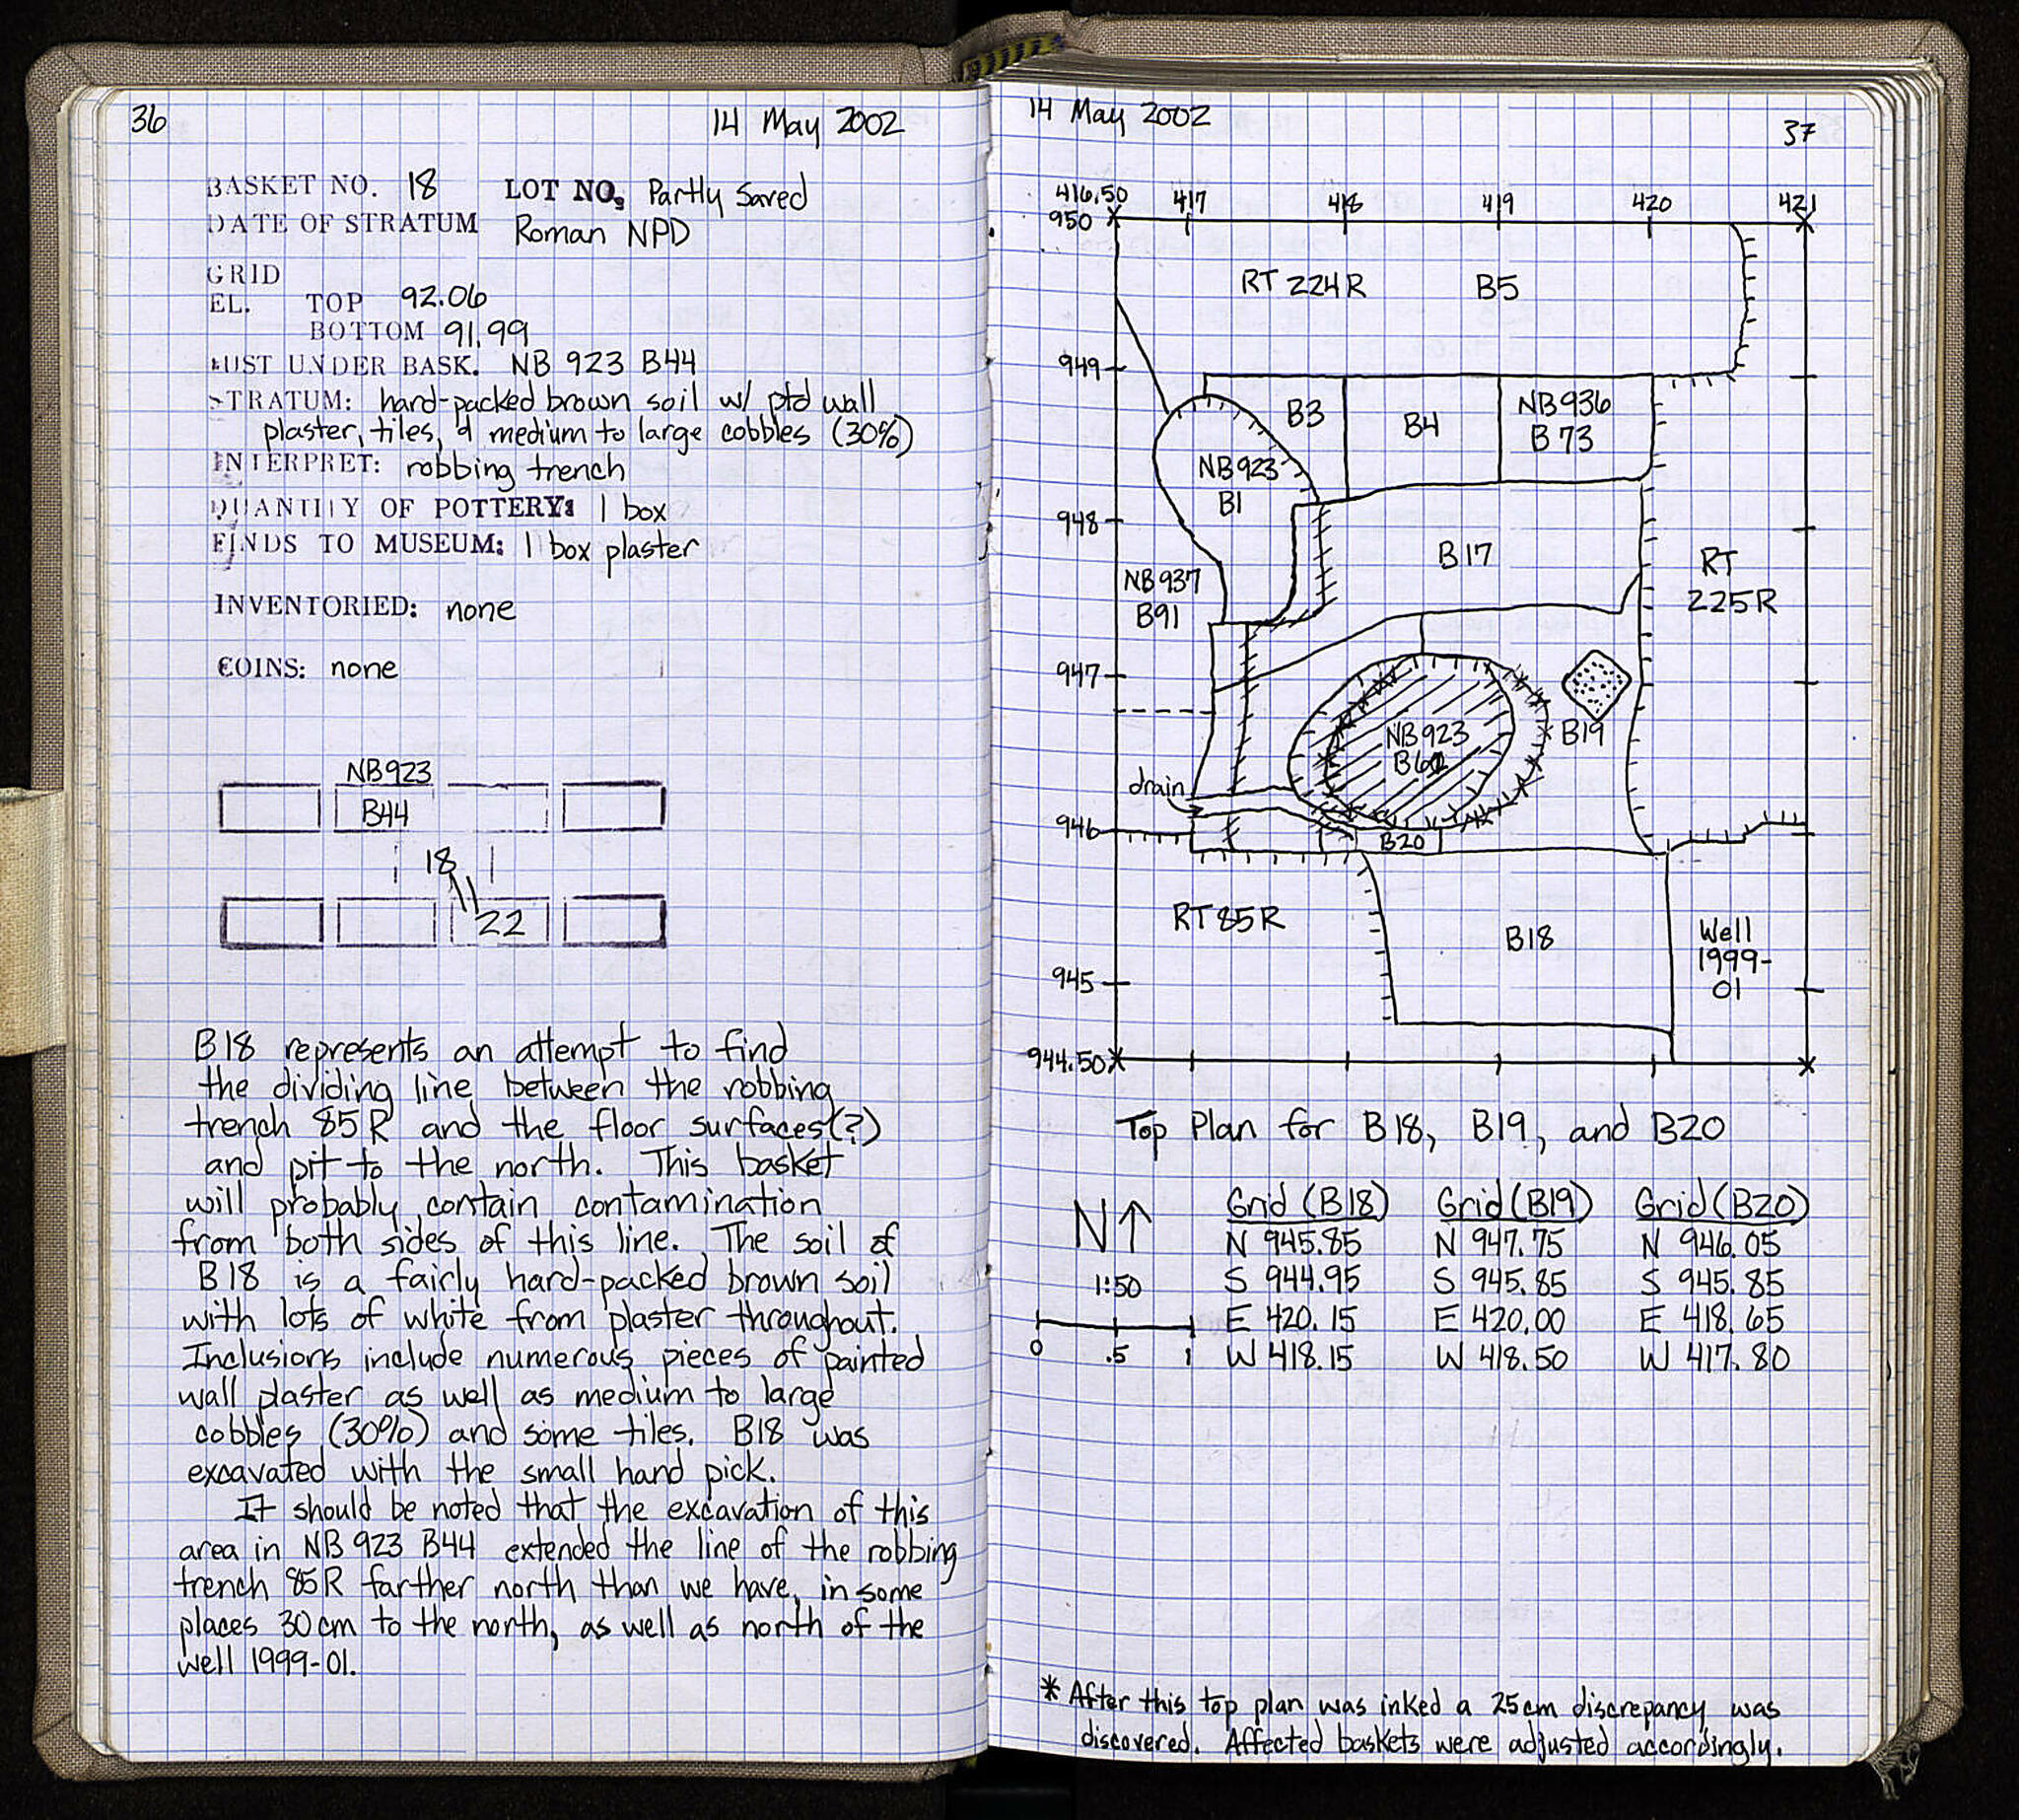 36
14 May 2002
BASKET NO. 18 LOT NO. Partly Saved
DATE OF STRATUM Roman NPD
GRID
EL. TOP 92.06
BOTTOM 91.99
JUST UNDER BASK. NB 923 B44
STRATUM: hard-packed brown soil w/ ptd wall
plaster, tiles, & medium to large cobbles (30%)
INTERPRET: robbing trench
QUANTITY OF POTTERY: 1 box
FINDS TO MUSEUM: 1 box plaster
INVENTORIED: none
COINS: none
NB923
B44
18
22
B18 represents an attempt to find
the dividing line between the robbing
trench 85R and the floor surfaces(?)
and pit to the north. This basket
will probably contain contamination
from both sides of this line. The soil of
B18 is a fairly hard-packed brown soil
with lots of white from plaster throughout.
Inclusions include numerous pieces of painted
wall plaster as well as medium to large
cobbles (30%) and some tiles. B18 was
excavated with the small hand pick.
It should be noted that the excavation of this
area in NB 923 B44 extended the line of the robbing
trench 85R farther north than we have, in some
places 30cm to the north, as well as north of the
well 1999-01.
14 May 2002
37
416.50 417 418 419 420 421
950
RT 224R B5
949
B3 B4 NB936
B73
NB923
B1
948
B17
RT
225R
NB937
B91
947
NB923
B19
drain
946
B20
RT 85R
B18
Well
1999-
01
945
944.50
Top Plan for B18, B19, and B20
N↑
1:50
0 .5 1
Grid (B18) Grid (B19) Grid (B20)
N 945.85 N 947.75 N 946.05
S 944.95 S 945.85 S 945.85
E 420.15 E 420.00 E 418.65
W 418.15 W 418.50 W 417.80
* After this top plan was inked a 25cm discrepancy was
discovered. Affected baskets were adjusted accordingly.